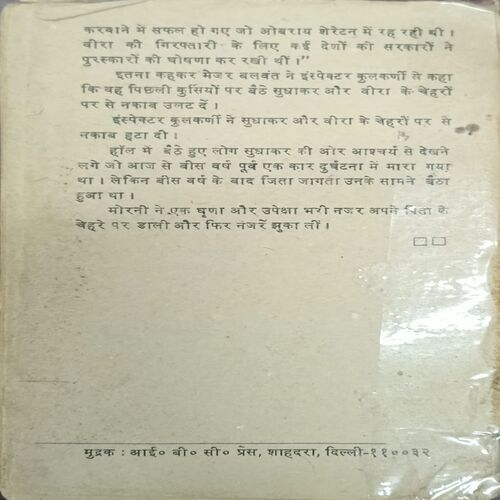 करवाने में सफल हो गए जो ओबराय शेरेटन में रह रही थी।
वीरा की गिरफ्तारी के लिए कई देशों की सरकारों ने
पुरस्कारों की घोषणा कर रखी थीं।”
इतना कहकर मेजर बलवंत ने इंस्पेक्टर कुलकर्णी से कहा
कि वह पिछली कुर्सियों पर बैठे सुधाकर और वीरा के चेहरों
पर से नकाब उलट दें।
इंस्पेक्टर कुलकर्णी ने सुधाकर और वीरा के चेहरों पर से
नकाब हटा दी।
हॉल में बैठे हुए लोग सुधाकर की ओर आश्चर्य से देखने
लगे जो आज से बीस वर्ष पूर्व एक कार दुर्घटना में मारा गया
था। लेकिन बीस वर्ष के बाद जिता जागता उनके सामने बैठा
हुआ था।
मोरनी ने एक घृणा और उपेक्षा भरी नजर अपने पिता के
चेहरे पर डाली और फिर नजरें झुका लीं।
□□
मुद्रक : आई० बी० सी० प्रेस, शाहदरा, दिल्ली-११००३२